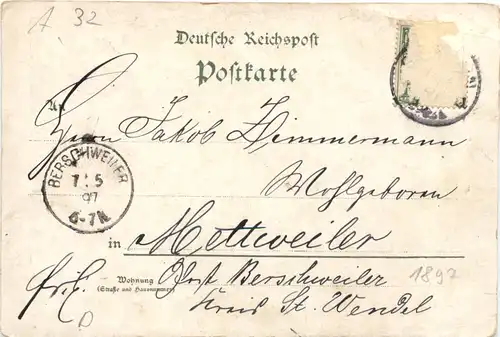 A 32
Deutsche Reichspost
Postkarte
An
Herrn Jakob Zimmermann
Wohlgeboren
BERSCHWEILER
7 5
97
6-7N
in Mettweiler
Wohnung
(Straße und Hausnummer)
Post Berschweiler
1897
Kreis St. Wendel